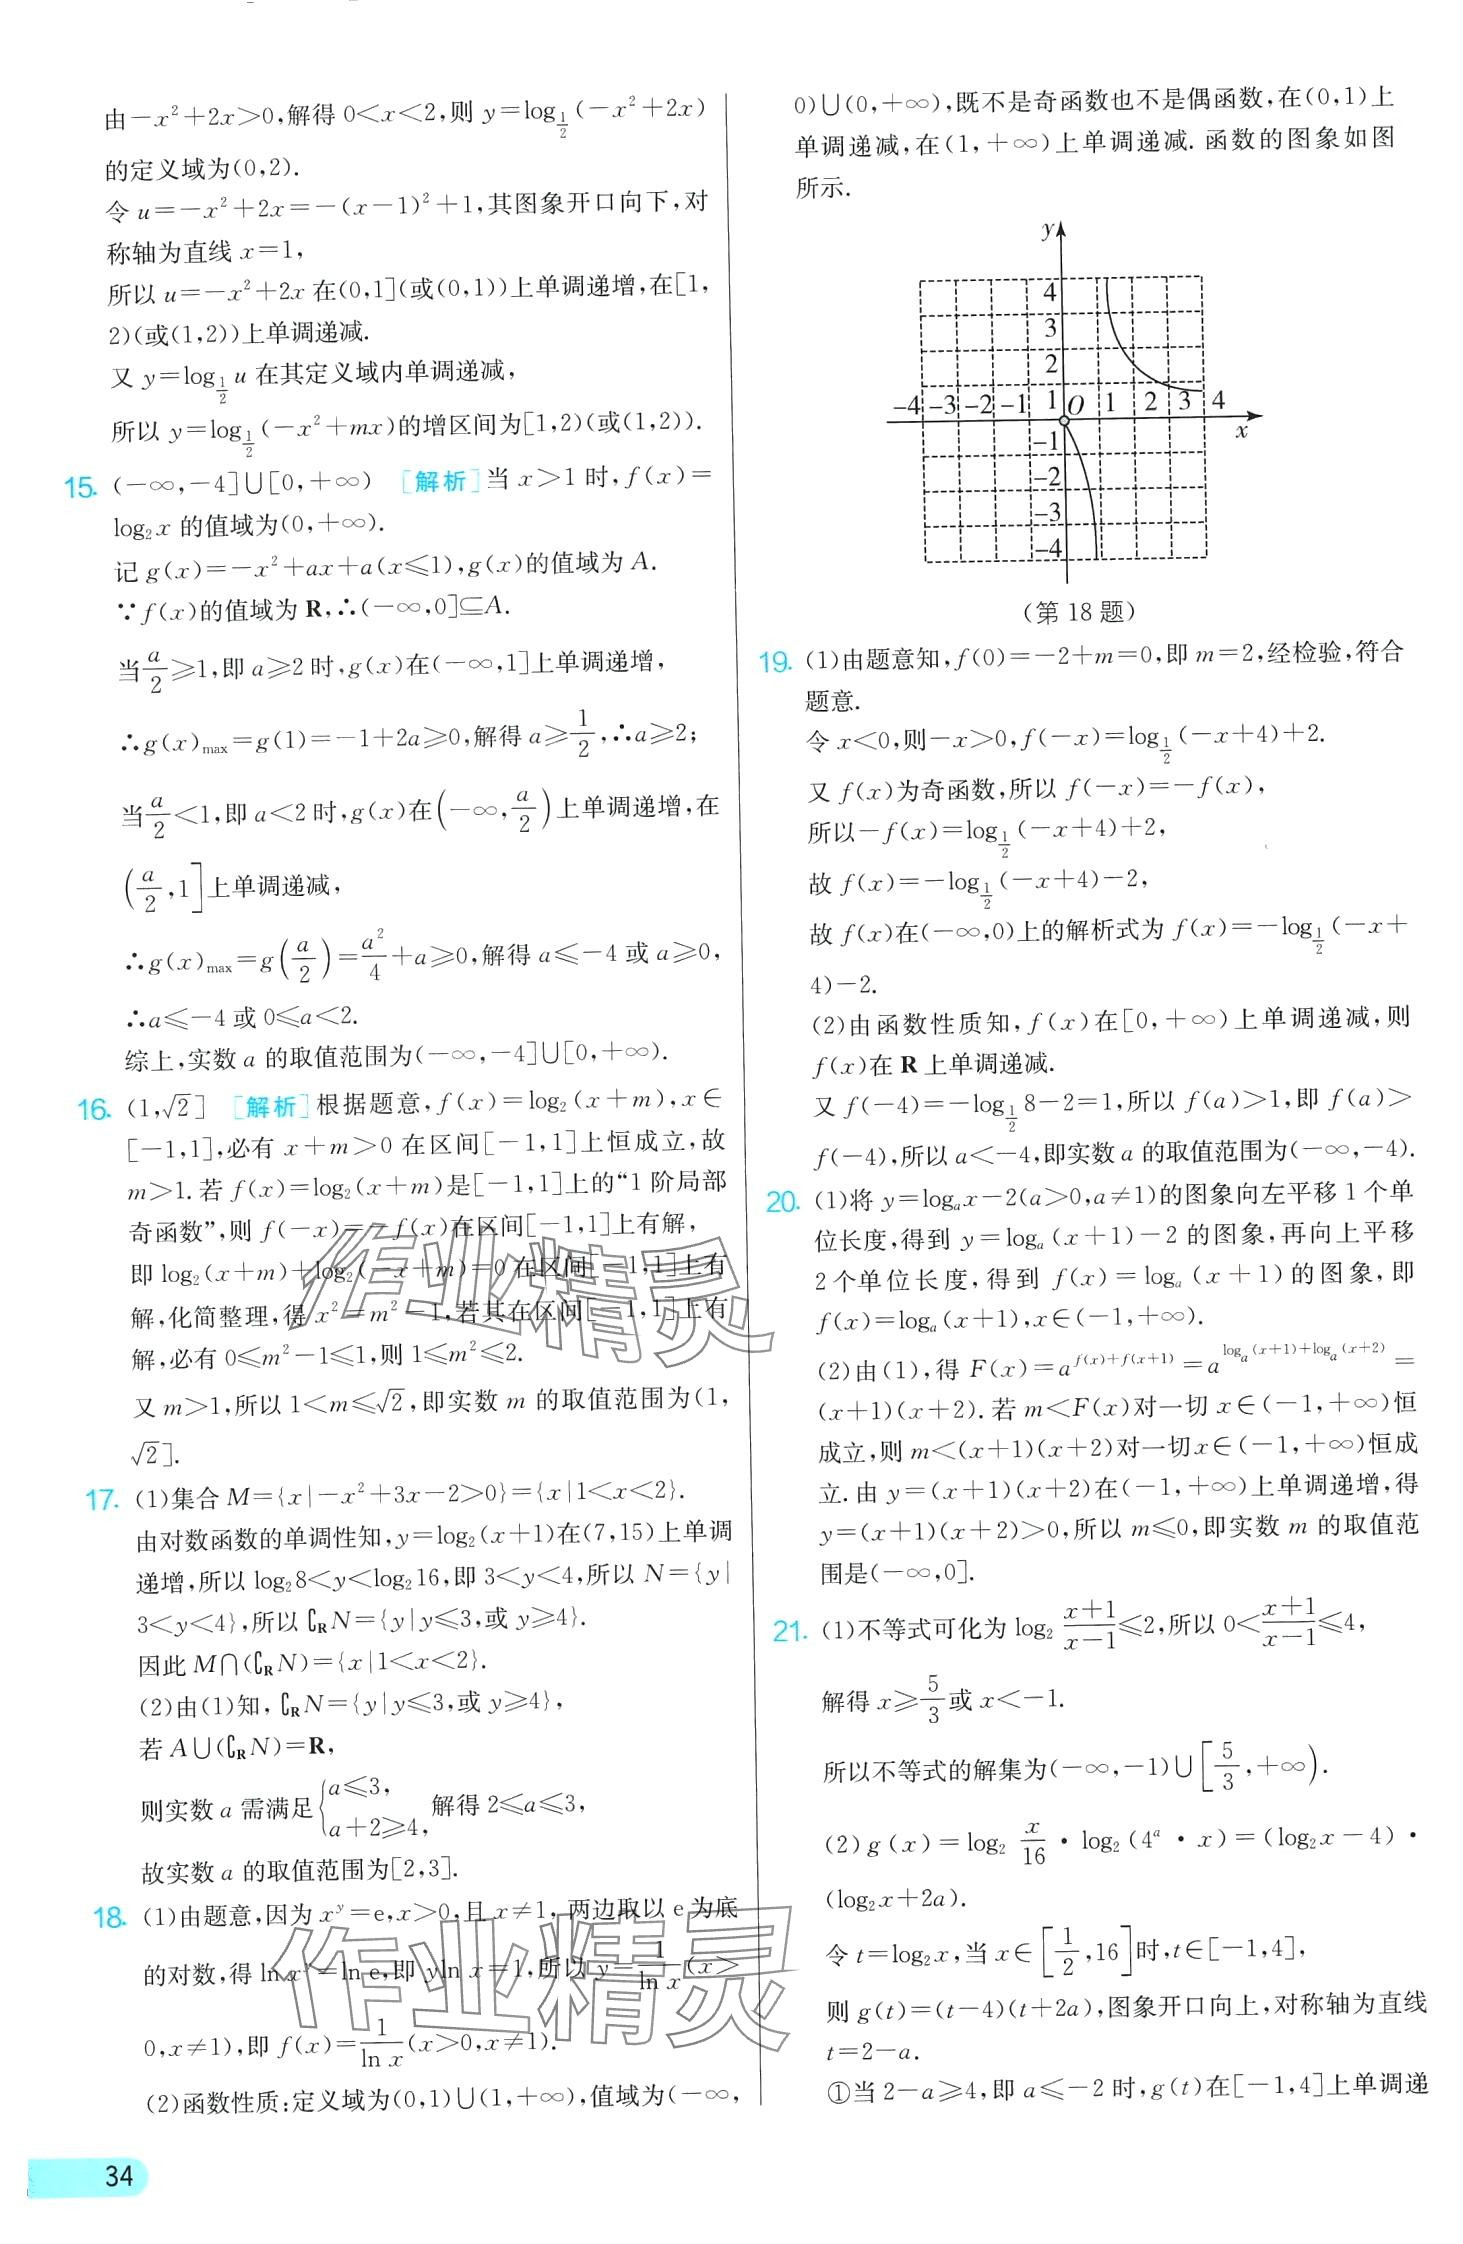 由-x²+2x>0,解得 0<x<2,则 y=log_{1/2}(-x²+2x)
的定义域为(0,2).
令 u=-x²+2x=-(x-1)²+1,其图象开口向下,对
称轴为直线 x=1,
所以 u=-x²+2x 在(0,1](或(0,1))上单调递增,在[1,
2)(或(1,2))上单调递减.
又 y=log_{1/2}u 在其定义域内单调递减,
所以 y=log_{1/2}(-x²+mx)的增区间为[1,2)(或(1,2)).
15. (-∞,-4]∪[0,+∞) [解析]当 x>1 时,f(x)=
log₂x 的值域为(0,+∞).
记 g(x)=-x²+ax+a(x≤1),g(x)的值域为 A.
∵f(x)的值域为 R,∴(-∞,0]⊆A.
当a/2≥1,即 a≥2 时,g(x)在(-∞,1]上单调递增,
∴g(x)_{max}=g(1)=-1+2a≥0,解得 a≥1/2,∴a≥2;
当a/2<1,即 a<2 时,g(x)在(-∞,a/2)上单调递增,在
(a/2,1]上单调递减,
∴g(x)_{max}=g(a/2)=a²/4+a≥0,解得 a≤-4 或 a≥0,
∴a≤-4 或 0≤a<2.
综上,实数 a 的取值范围为(-∞,-4]∪[0,+∞).
16. (1,√2] [解析]根据题意,f(x)=log₂(x+m),x∈
[-1,1],必有 x+m>0 在区间[-1,1]上恒成立,故
m>1.若 f(x)=log₂(x+m)是[-1,1]上的“1 阶局部
奇函数”,则 f(-x)=-f(x)在区间[-1,1]上有解,
即 log₂(x+m)+log₂(-x+m)=0 在区间[-1,1]上有
解,化简整理,得 x²=m²-1,若其在区间[-1,1]上有
解,必有 0≤m²-1≤1,则 1≤m²≤2.
又 m>1,所以 1<m≤√2,即实数 m 的取值范围为(1,
√2].
17. (1)集合 M={x|-x²+3x-2>0}={x|1<x<2}.
由对数函数的单调性知,y=log₂(x+1)在(7,15)上单调
递增,所以 log₂8<y<log₂16,即 3<y<4,所以 N={y|
3<y<4},所以 ∁_R N={y|y≤3,或 y≥4}.
因此 M∩(∁_R N)={x|1<x<2}.
(2)由(1)知,∁_R N={y|y≤3,或 y≥4},
若 A∪(∁_R N)=R,
则实数 a 需满足{a≤3, a+2≥4, 解得 2≤a≤3,
故实数 a 的取值范围为[2,3].
18. (1)由题意,因为 x^y=e,x>0,且 x≠1,两边取以 e 为底
的对数,得 ln x^y=ln e,即 yln x=1,所以 y=1/ln x(x>
0,x≠1),即 f(x)=1/ln x(x>0,x≠1).
(2)函数性质:定义域为(0,1)∪(1,+∞),值域为(-∞,
34
0)∪(0,+∞),既不是奇函数也不是偶函数,在(0,1)上
单调递减,在(1,+∞)上单调递减.函数的图象如图
所示.
y
4
3
2
1
-4 -3 -2 -1 O 1 2 3 4
x
-1
-2
-3
-4
(第 18 题)
19. (1)由题意知,f(0)=-2+m=0,即 m=2,经检验,符合
题意.
令 x<0,则-x>0,f(-x)=log_{1/2}(-x+4)+2.
又 f(x)为奇函数,所以 f(-x)=-f(x),
所以-f(x)=log_{1/2}(-x+4)+2,
故 f(x)=-log_{1/2}(-x+4)-2,
故 f(x)在(-∞,0)上的解析式为 f(x)=-log_{1/2}(-x+
4)-2.
(2)由函数性质知,f(x)在[0,+∞)上单调递减,则
f(x)在 R 上单调递减.
又 f(-4)=-log_{1/2}8-2=1,所以 f(a)>1,即 f(a)>
f(-4),所以 a<-4,即实数 a 的取值范围为(-∞,-4).
20. (1)将 y=log_a x-2(a>0,a≠1)的图象向左平移 1 个单
位长度,得到 y=log_a(x+1)-2 的图象,再向上平移
2 个单位长度,得到 f(x)=log_a(x+1)的图象,即
f(x)=log_a(x+1),x∈(-1,+∞).
(2)由(1),得 F(x)=a^{f(x)+f(x+1)}=a^{log_a(x+1)+log_a(x+2)}=
(x+1)(x+2).若 m<F(x)对一切 x∈(-1,+∞)恒
成立,则 m<(x+1)(x+2)对一切x∈(-1,+∞)恒成
立.由 y=(x+1)(x+2)在(-1,+∞)上单调递增,得
y=(x+1)(x+2)>0,所以 m≤0,即实数 m 的取值范
围是(-∞,0].
21. (1)不等式可化为 log₂ (x+1)/(x-1)≤2,所以 0<(x+1)/(x-1)≤4,
解得 x≥5/3或 x<-1.
所以不等式的解集为(-∞,-1)∪[5/3,+∞).
(2)g(x)=log₂ x/16·log₂(4^a·x)=(log₂x-4)·
(log₂x+2a).
令 t=log₂x,当 x∈[1/2,16]时,t∈[-1,4],
则 g(t)=(t-4)(t+2a),图象开口向上,对称轴为直线
t=2-a.
①当 2-a≥4,即 a≤-2 时,g(t)在[-1,4]上单调递
作业精灵
作业精灵